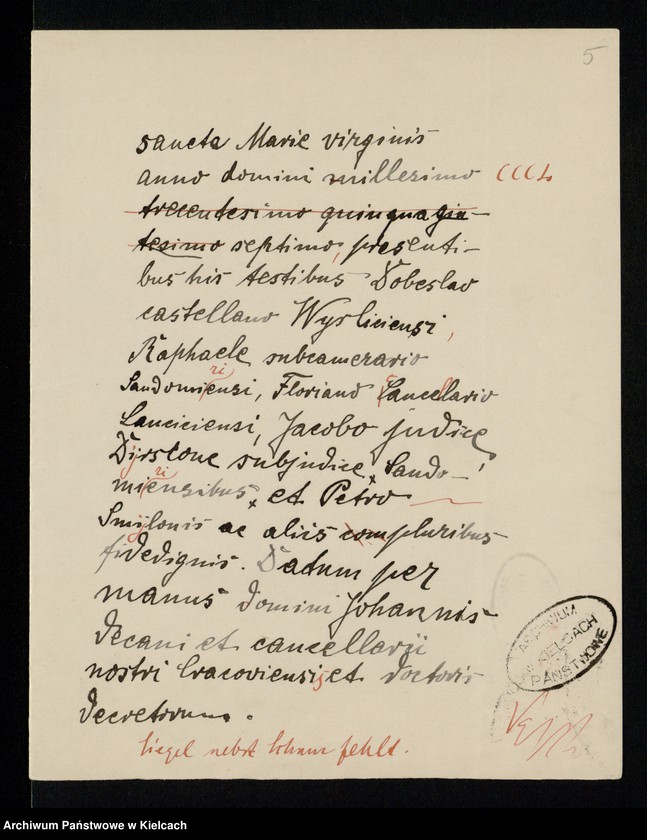 5
sancte Marie virginis
anno domini millesimo CCCL
trecentesimo quinquagin-
tesimo septimo, presenti-
bus his testibus Dobeslao
castellano Wysliciensi,
Raphaele subcamerario
ri
Sandomiensi, Floriano Cancellario
Lanciciensi, Jacobo judice,
Dyrslone subjudice, Sando-
ri
miensibus, et Petro
Smylonis ac aliis compluribus
fidedignis. Datum per
manus domini Johannis
Decani et cancellarii
nostri Cracoviensis et doctoris
Decretorum.
Siegel nebst Schnur fehlt.
ARCHIWUM
W KIELCACH
PAŃSTWOWE
Archiwum Państwowe w Kielcach